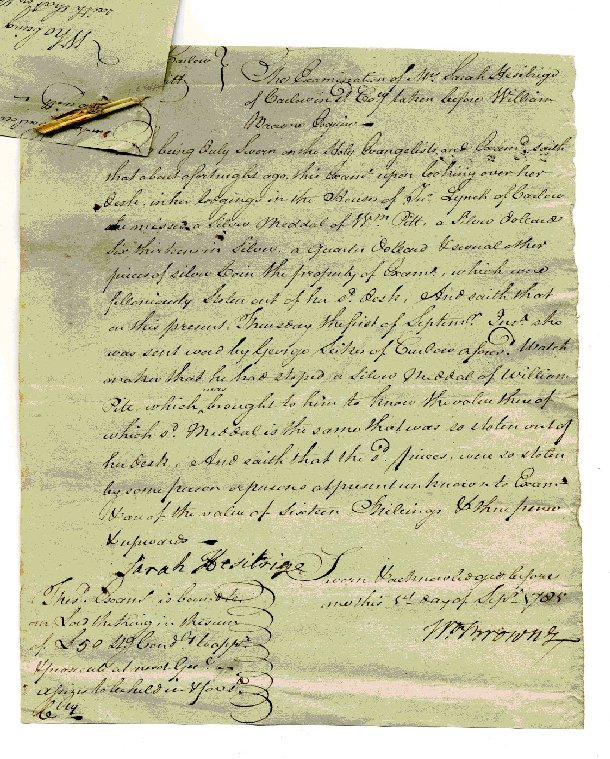 Carlow
The Examination of Mrs. Sarah Hesitrige
of Carlow in sd. Coy. taken before William
Browne Esquire
being duly Sworn on the Holy Evangelists and Examd. saith
that about a fortnight ago, this Examt. upon looking over her
desk, in her lodgings in the House of Jno. Lynch of Carlow
she missed a Silver Meddal of Wm. Pitt, a Silver Dollard
Six thirteens in Silver, a Quarter Dollard & several other
pieces of silver Coin the property of Examt., which were
felloniously Stolen out of her sd. desk, And saith that
on this present Thursday the first of Septemr. Inst. she
was sent word by George Lisker of Carlow aforesd. Watch
maker that he had stoped a Silver Meddal of William
Pitt, which was brought to him to know the value thereof
which sd. Meddal is the same that was so stolen out of
her desk, And saith that the sd. pieces, were so stolen
by some person or persons at present unknown to Examt.
& are of the value of Sixteen Shillings & three pence
& upwards
Sarah Hesitrige
Sworn & acknowledged before
me this 1st day of Septr. 1785
Wm Browne
This Examt. is bound to
our Lord the King in the sum
of £50 Stg. Condd. to appr.
& prosecute at next Genl.
Assizes to be held in & for sd.
Coty